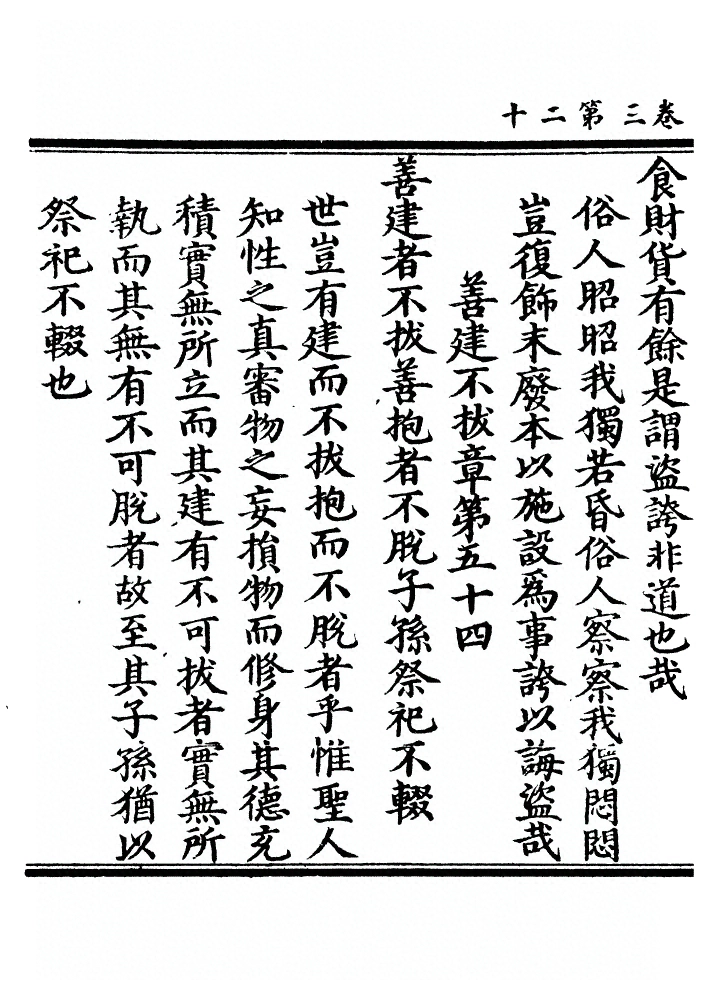 卷三第二十
食財貨有餘是謂盜誇非道也哉
俗人昭昭我獨若昏俗人察察我獨悶悶
豈復飾末廢本以施設為事誇以誨盜哉
善建不拔章第五十四
善建者不拔善抱者不脫子孫祭祀不輟
世豈有建而不拔抱而不脫者乎惟聖人
知性之真審物之妄損物而修身其德充
積實無所立而其建有不可拔者實無所
執而其無有不可脫者故至其子孫猶以
祭祀不輟也